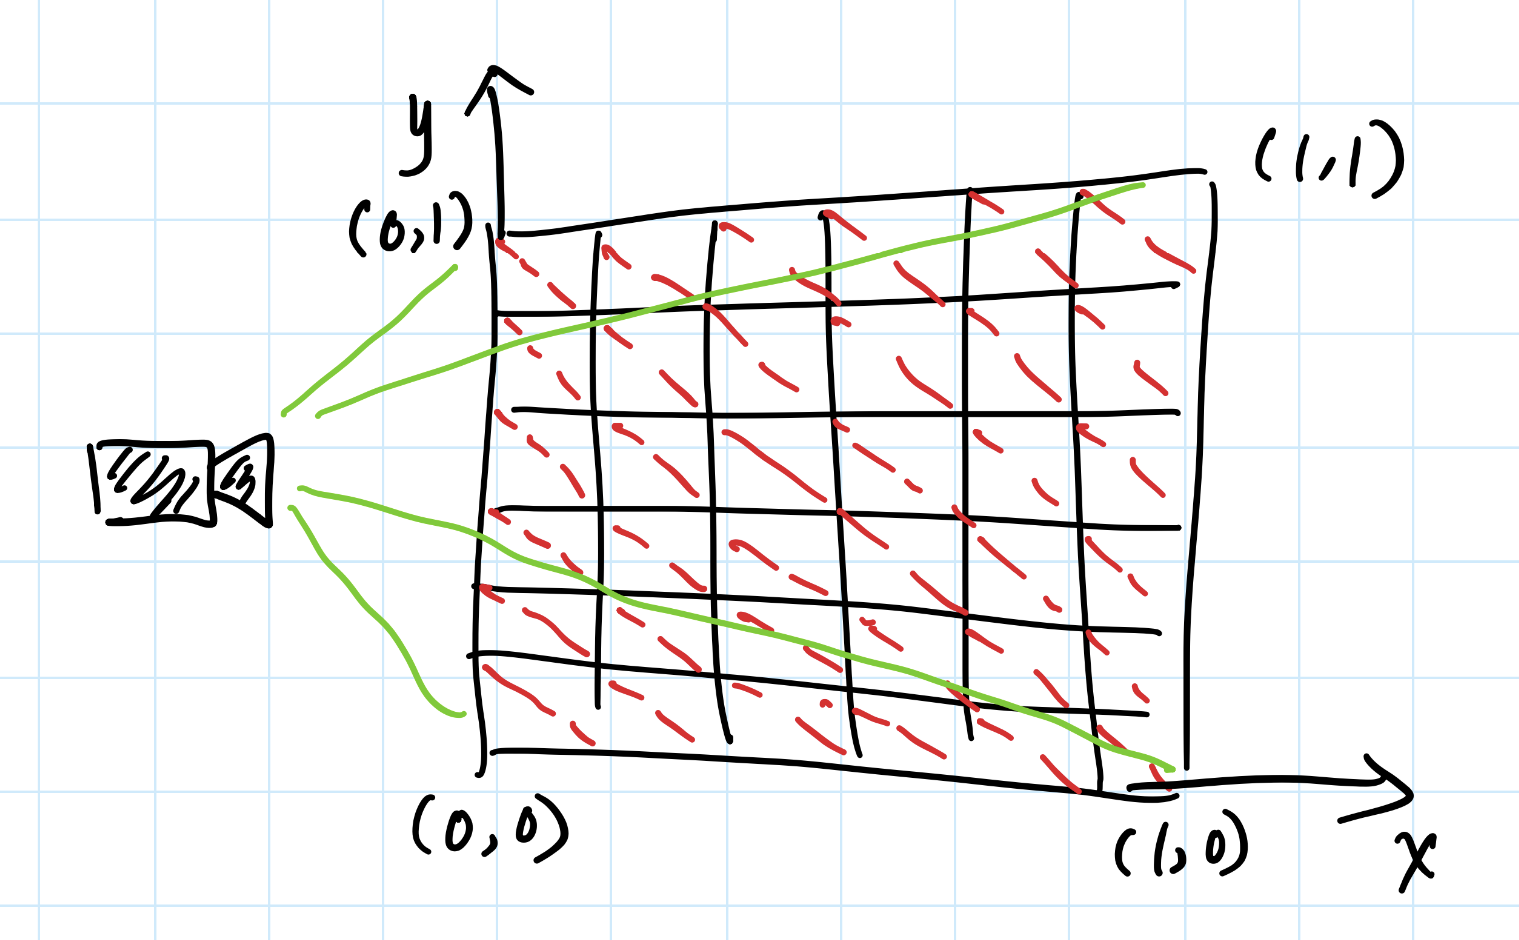 y
(1,1)
(0,1)
(0,0)
(1,0)
x